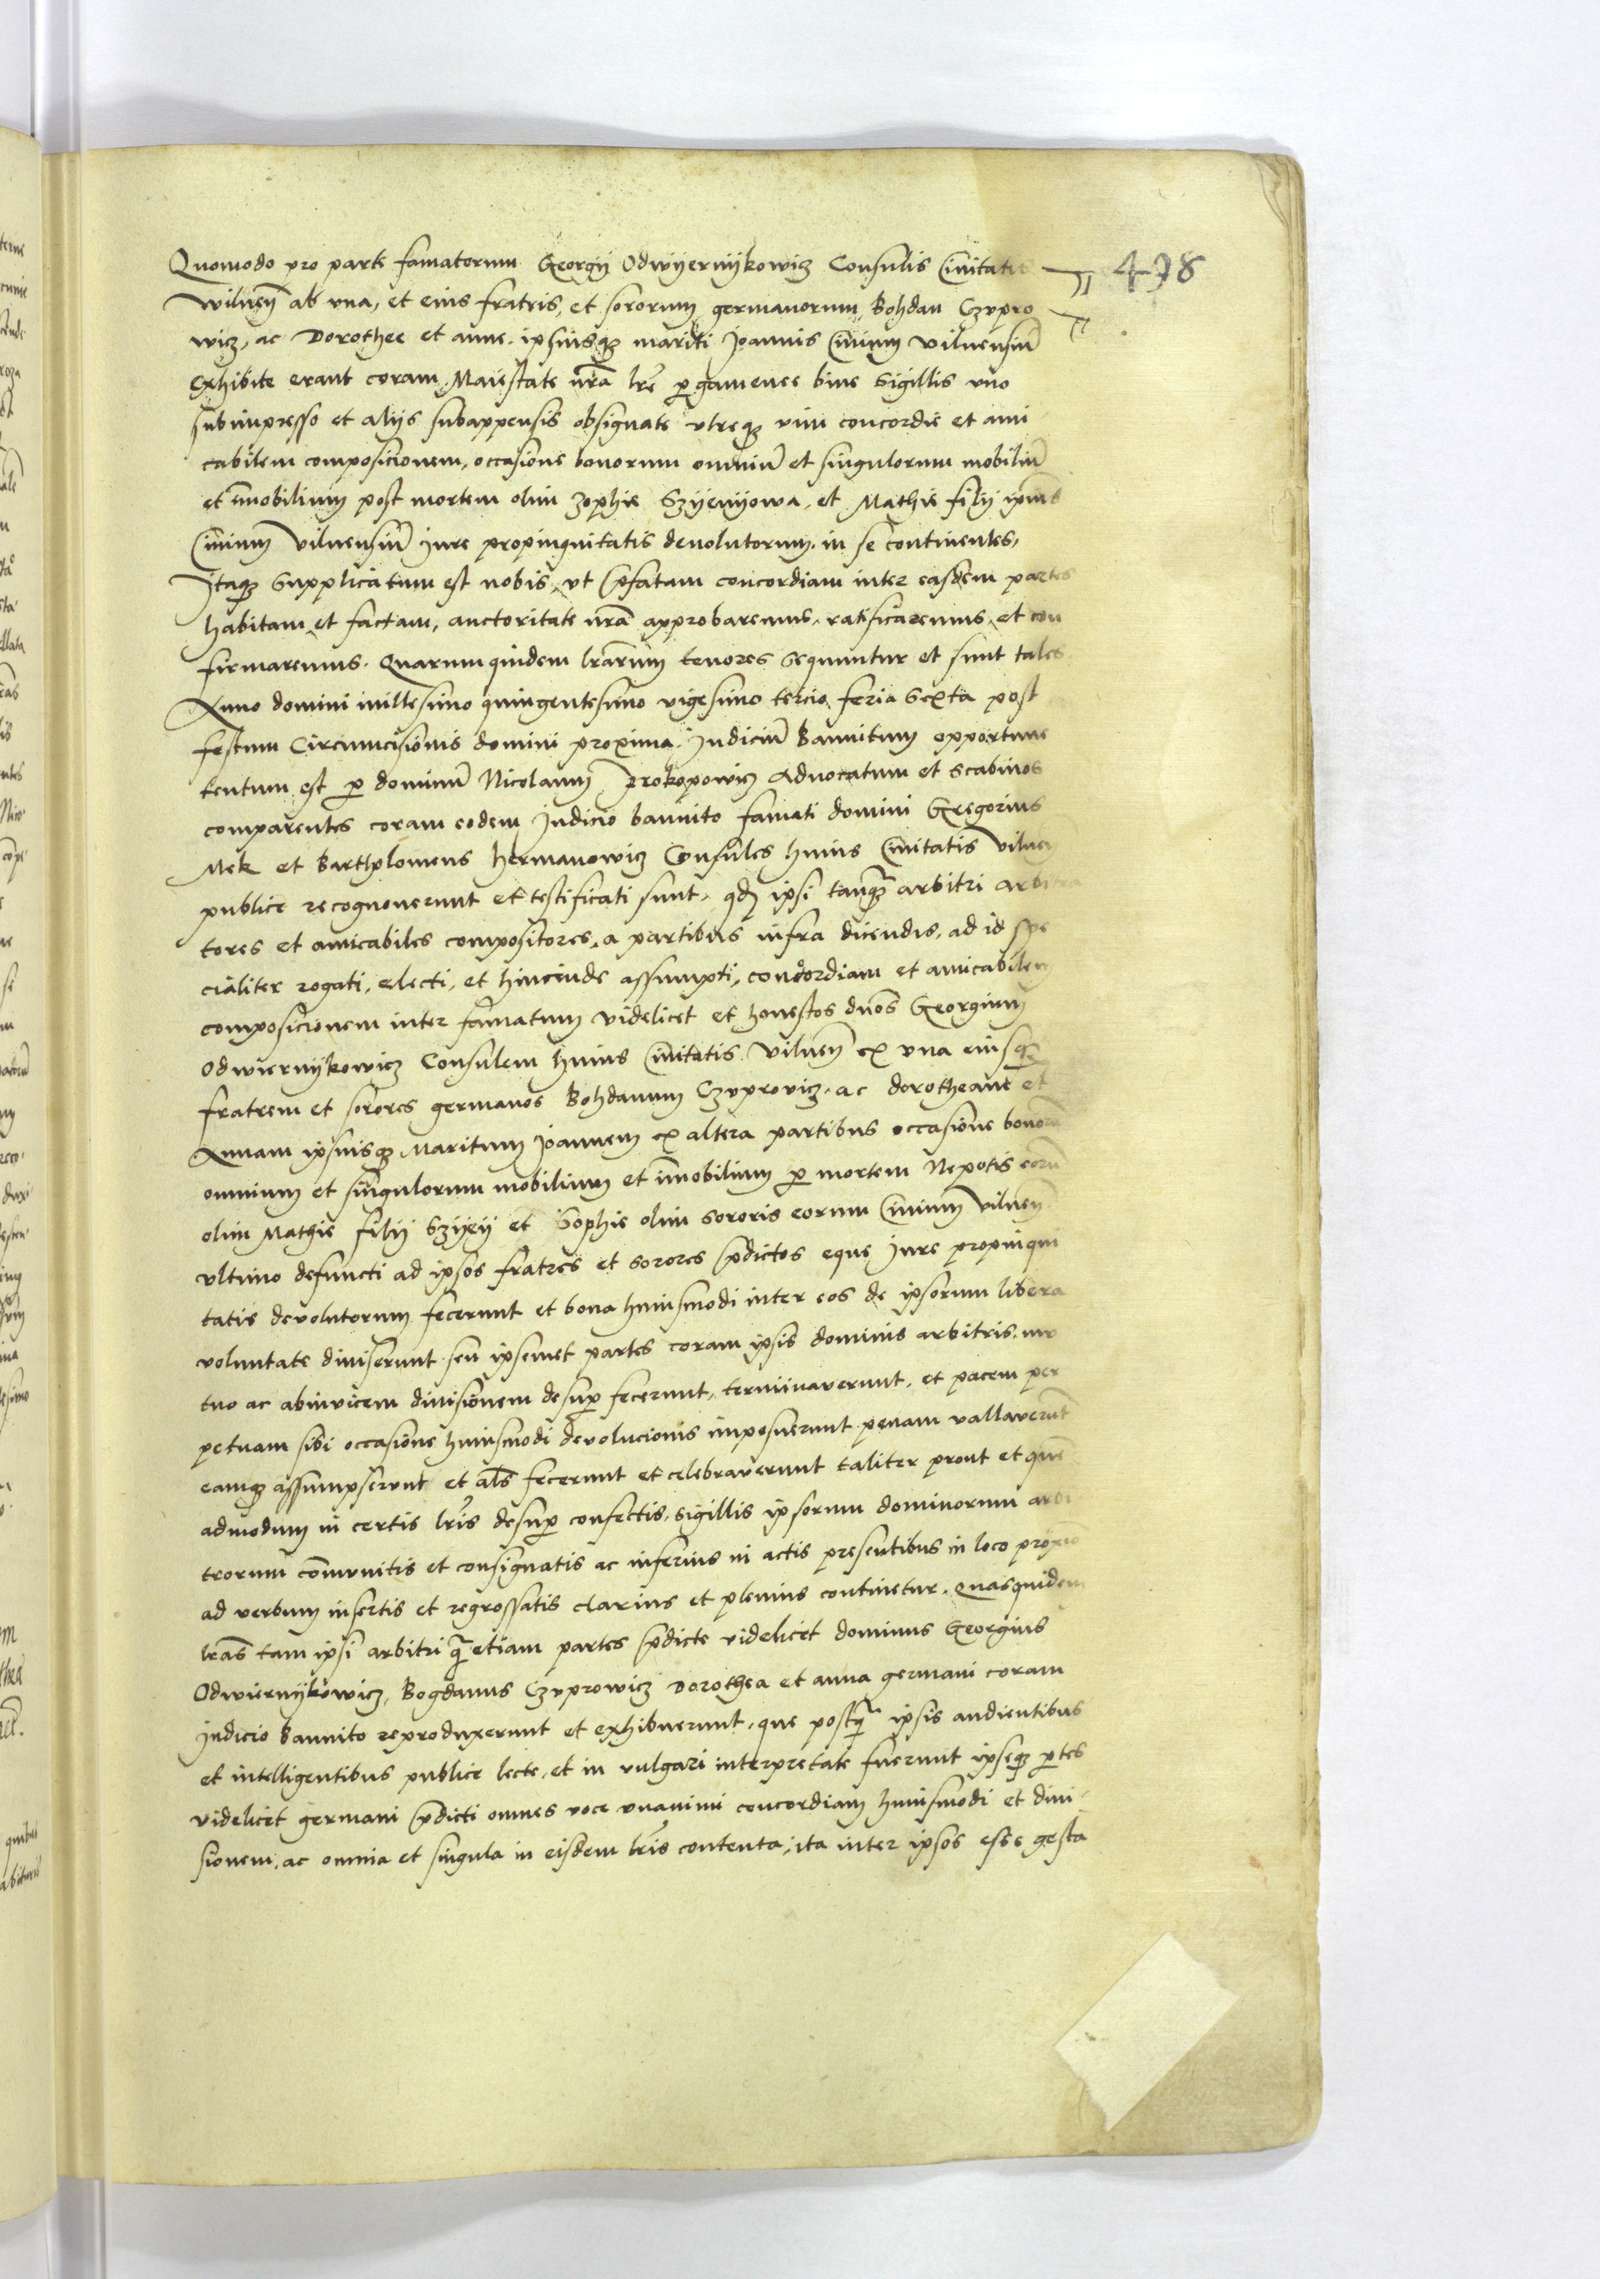 Quomodo pro parte famatorum Georgij Odwyernijkowicz Consulis Ciuitatis
498
wilneñ ab vna, et eius fratris, et sororum germanorum, Bohdan Czvpro
wicz, ac Dorothee et anne. ipsiusqz mariti Joannis Ciuium vilnensiū
exhibite erant coram Maiestate nrã lre pgamenee bine sigillis vno
subimpresso et alijs subappensis obsignate vtreqz vim concordie et ami
cabilem composicionem, occasione bonorum omniū et singulorum mobiliū
et īmobilium post mortem olim zophie Szyenyowa, et Mathie filij ipius
Ciuium vilnensiū jure propinquitatis deuolutorum. in se continentes,
Itaqz supplicatum est nobis, vt p̄fatam concordiam inter easdem partes
habitam et factam, auctoritate nrã approbaremus, ratificaremus, et con
firmaremus. Quarumquidem lrarum tenores sequuntur et sunt tales.
Anno domini millesimo quingentesimo vigesimo tercio feria sexta post
festum Circumcisionis domini proxima. Judiciū bannitum opportune
tentum est p dominū Nicolaum Prokopowicz aduocatum et scabinos
comparentes coram eodem Judicio bannito famati domini Gregorius
Mek et Bartholomeus hermanowicz Consules huius Ciuitatis vilneñ
publice recognouerunt et testificati sunt, qd ipsi tanqz arbitri arbitra
tores et amicabiles compositores, a partibus infra dicendis, ad id spe
cialiter rogati, electi, et hincinde assumpti, concordiam et amicabilem
composicionem inter famatum videlicet et honestos duos Georgium
Odwiernijkowicz Consulem huius Ciuitatis vilneñ ex vna eiusqz
fratrem et sorores germanos Bohdanum Czvprouicz. ac dorotheam et
Annam ipsiusqz Maritum Joannem ex altera partibus occasione bonorum
omnium et singulorum mobilium et īmobilium p mortem Nepotis eorū
olim Mathie filij Szyeij et Sophie olim sororis eorum Ciuium vilneñ
vltimo defuncti ad ipsos fratres et sorores p̄dictos eque jure propinqui
tatis deuolutorum fecerunt et bona huiusmodi inter eos de ipsorum libera
voluntate diuiserunt seu ipsemet partes coram ipsis dominis arbitris. mu
tuo ac abinuicem diuisionem desup fecerunt, terminauerunt, et pacem per
petuam sibi occasione huiusmodi deuolucionis imposuerunt penam vallauerūt
eamqz assumpserunt et als fecerunt et celebrauerunt taliter prout et quē
admodum in certis lris desup confectis, sigillis ipsorum dominorum arbi
trorum cōmvnitis et consignatis ac inferius in actis presentibus in loco proximo
ad verbum insertis et regrossatis clarius et plenius continetur. Quasquidem
lras tam ipsi arbitri q̄ etiam partes p̄dicte videlicet dominus Georgius
Odwiernijkowicz, Bogdanus Czvprowicz Dorothea et anna germani coram
Judicio bannito reproduxerunt et exhibuerunt, que postq̄ ipsis audientibus
et intelligentibus publice lecte, et in vulgari interpretate fuerunt ipseqz ptes
videlicet germani p̄dicti omnes voce vnanimi concordiam huiusmodi et diui
sionem, ac omnia et singula in eisdem lris contenta, ita inter ipsos esse gesta